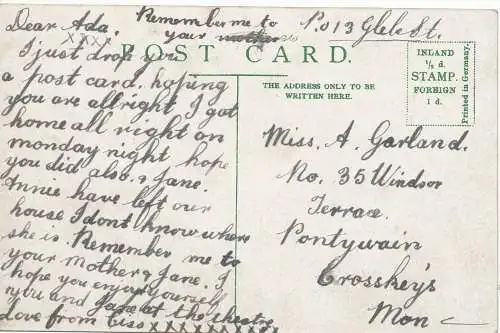 Dear Ada. Remember me to P.O 13 Glebe St.
xxxx your mother
POST CARD.
I just drop you
a post card. hoping
you are allright I got
home all right on
monday night hope
you did also. & Jane.
Annie have left our
house I dont know where
she is. Remember me to
your Mother & Jane. I
hope you enjoy yourself
you and Jane at the theatre
Love from xxxxxxxxxx
THE ADDRESS ONLY TO BE
WRITTEN HERE.
INLAND
½ d.
STAMP.
FOREIGN
1 d.
Printed in Germany.
Miss. A. Garland.
No. 35 Windsor
Terrace.
Pontywain
Crosskey's
Mon